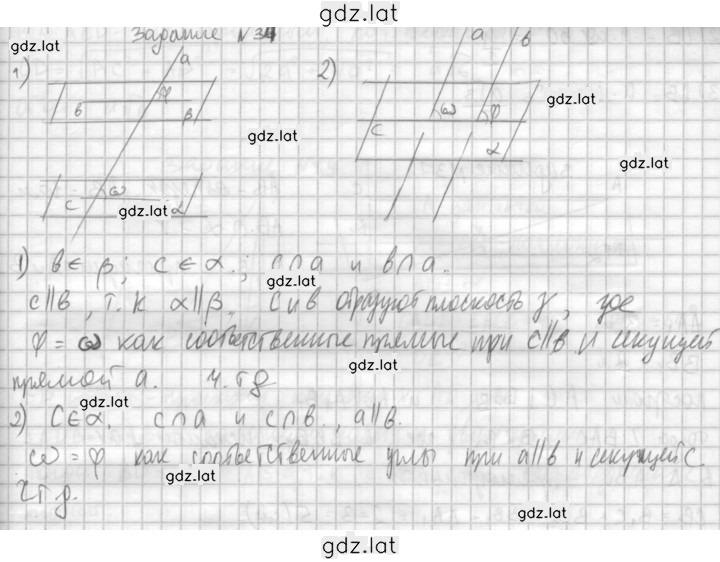 gdz.lat
Задание №34
gdz.lat
1)
a
φ
b
β
ω
c
α
gdz.lat
gdz.lat
2)
a
b
ω
φ
c
α
gdz.lat
gdz.lat
1) b ∈ β; c ∈ α.; c∩a и b∩a.
gdz.lat
c∥b, т.к α∥β. c и b образуют плоскость γ, где
φ = ω как соответственные прямые при c∥b и секущей
gdz.lat
прямой a. ч.тд
gdz.lat
2) c ∈ α, c∩a и c∩b., a∥b.
ω = φ как соответственные углы при a∥b и секущей c.
gdz.lat
Чтд.
gdz.lat
gdz.lat